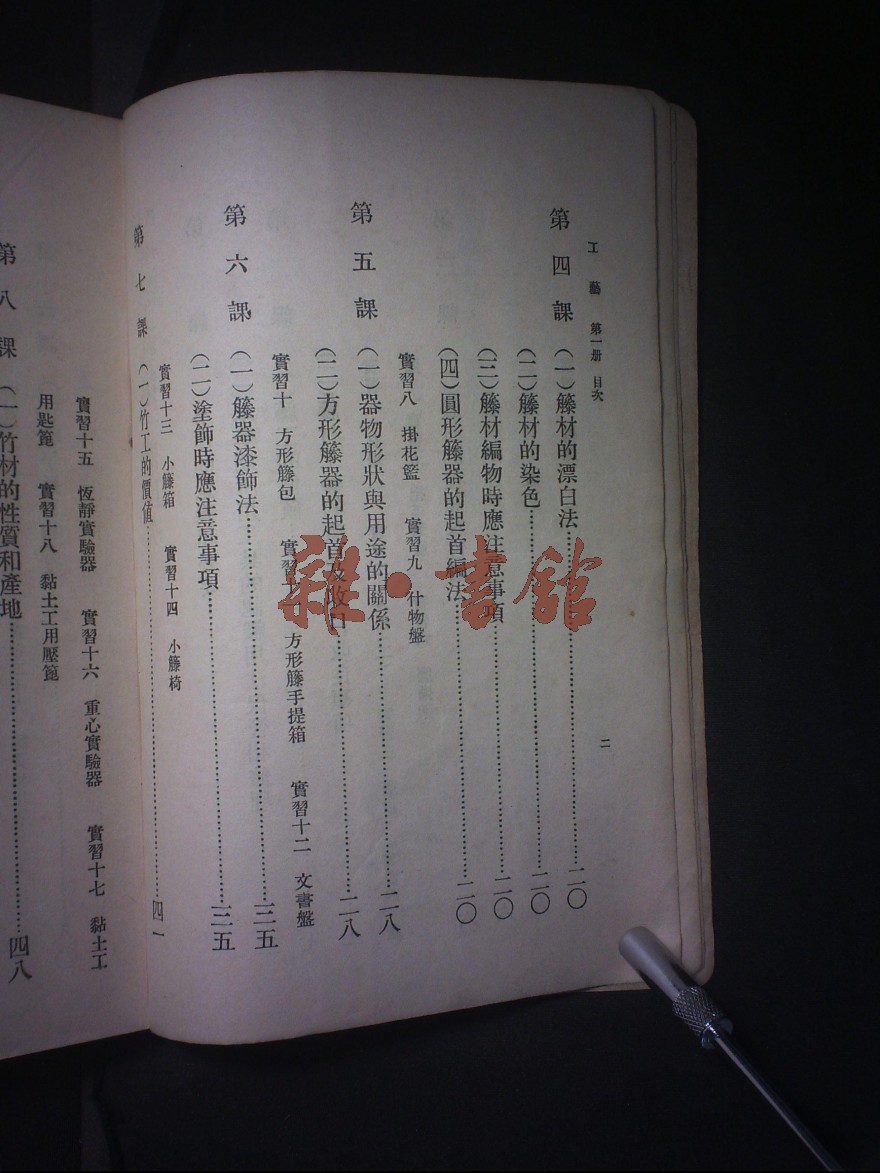 工藝 第一册 目次
二
第四課 (一)籐材的漂白法……二〇
(二)籐材的染色……二〇
(三)籐材編物時應注意事項……二〇
(四)圓形籐器的起首編法……二〇
實習八 掛花籃 實習九 什物盤
第五課 (一)器物形狀與用途的關係……二八
(二)方形籐器的起首及收口……二八
實習十 方形籐包 實習十一 方形籐手提箱 實習十二 文書盤
第六課 (一)籐器漆飾法……三五
(二)塗飾時應注意事項……三五
實習十三 小籐箱 實習十四 小籐椅
第七課 (一)竹工的價值……四一
實習十五 恆靜實驗器 實習十六 重心實驗器 實習十七 黏土工
用匙篦 實習十八 黏土工用壓篦
第八課 (一)竹材的性質和產地……四八
雜·書館